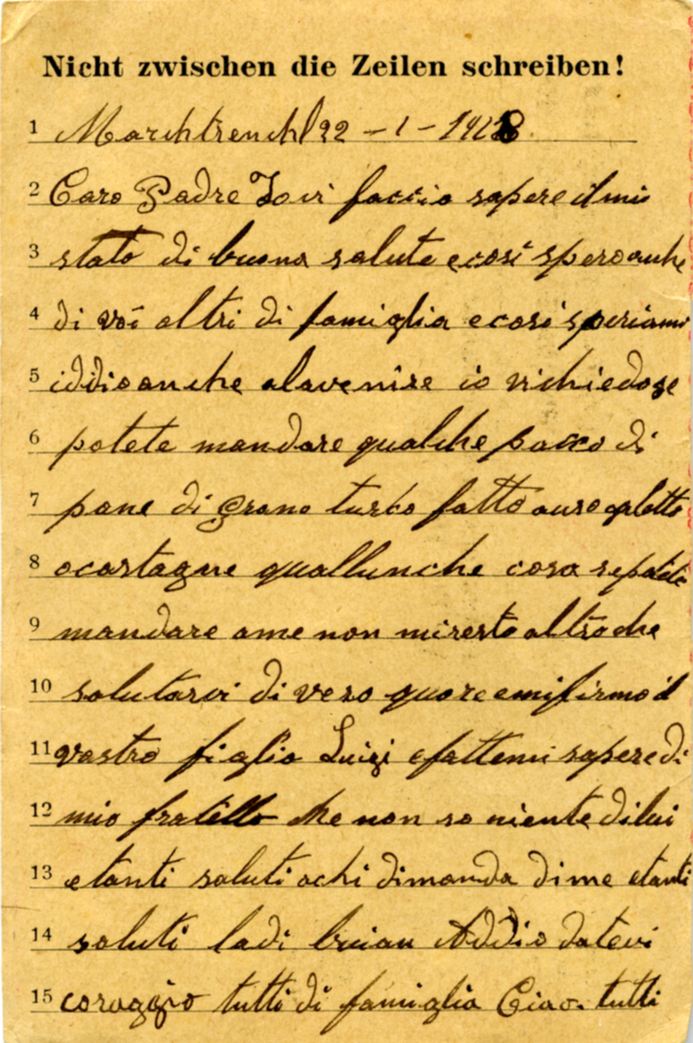 Nicht zwischen die Zeilen schreiben!
1 Marchtrenchl 22 - 1 - 1918
2 Caro Padre Io vi faccio sapere il mio
3 stato di buona salute e cosi spero anche
4 di voi altri di famiglia e cosi speriamo
5 iddio anche alavenire io richiedo se
6 potete mandare qualche pacco di
7 pane di grano turco fatto
8 o castagne quallunche cosa se potete
9 mandare a me non mi resto altro che
10 salutarvi di vero quore e mi firmo il
11 vostro figlio Luigi e fattemi sapere di
12 mio fratello che non so niente di lui
13 e tanti saluti a chi dimanda di me e tanti
14 saluti Addio datevi
15 coraggio tutti di famiglia Ciao. tutti